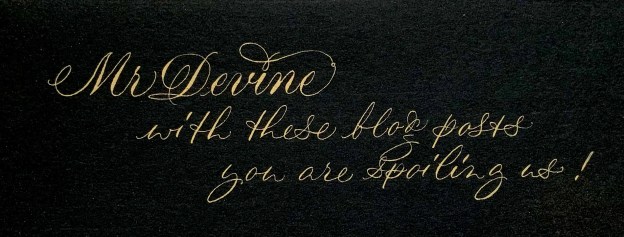 Mr Devine
with these blog posts
you are spoiling us!